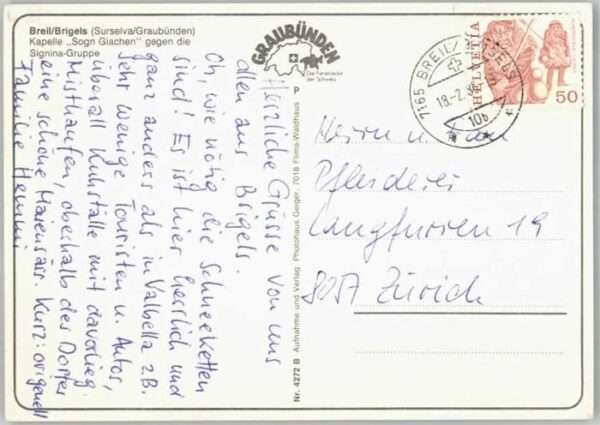 Breil/Brigels (Surselva/Graubünden)
Kapelle „Sogn Giachen" gegen die
Signina-Gruppe
GRAUBÜNDEN
Die Ferienecke
der Schweiz
HELVETIA
50
7165 BREIL/BRIGELS
18.-2.
10
Herzliche Grüsse von uns
allen aus Brigels.
Oh, wie nötig die Schneeketten
sind! Es ist hier herrlich und
ganz anders als in Valbella z.B.
Sehr wenige Touristen u. Autos,
überall Kuhställe mit davorlieg.
Misthaufen, oberhalb des Dorfes
eine schöne Maiensäss. Kurz: originell
Familie
P
Nr. 4272 B Aufnahme und Verlag: Photohaus Geiger, 7018 Flims-Waldhaus
Herrn u. Frau
Pfenderei
Langfurren 19
8057 Zürich